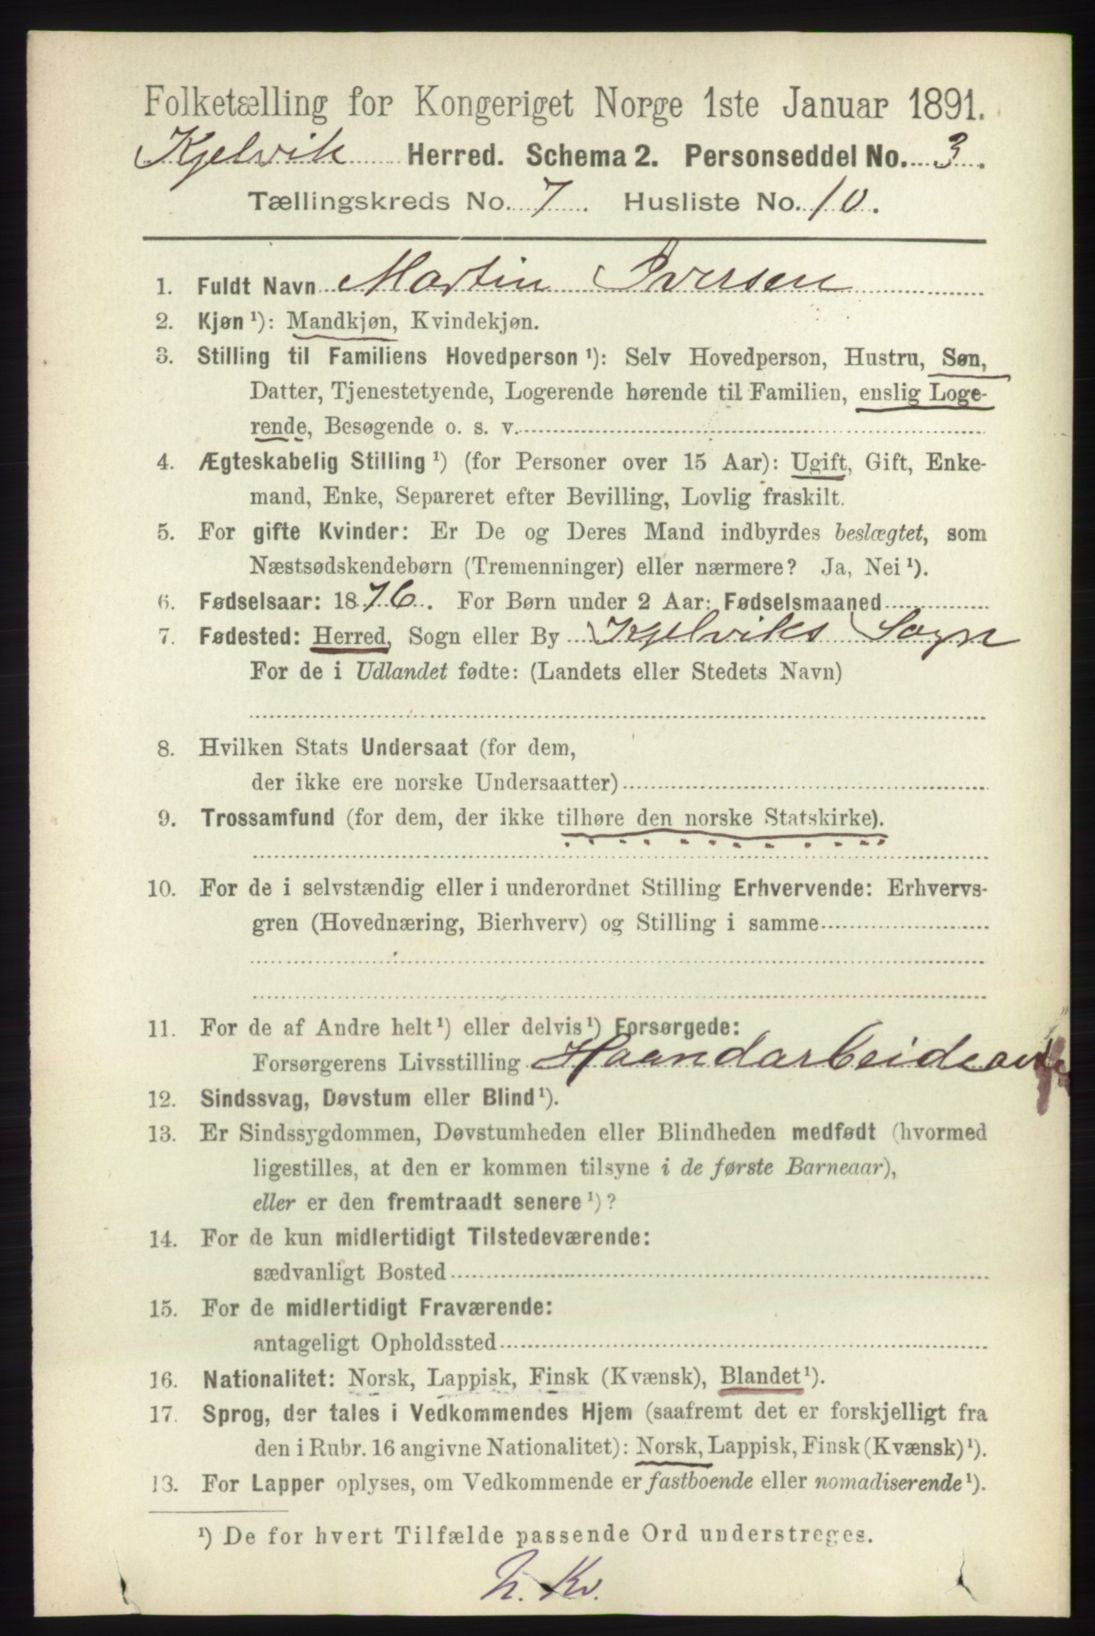 Folketælling for Kongeriget Norge 1ste Januar 1891.
Kjelvik Herred. Schema 2. Personseddel No. 3.
Tællingskreds No. 7. Husliste No. 10.
1. Fuldt Navn Martin Iversen
2. Kjøn ¹): Mandkjøn, Kvindekjøn.
3. Stilling til Familiens Hovedperson ¹): Selv Hovedperson, Hustru, Søn,
Datter, Tjenestetyende, Logerende hørende til Familien, enslig Loge-
rende, Besøgende o. s. v.
4. Ægteskabelig Stilling ¹) (for Personer over 15 Aar): Ugift, Gift, Enke-
mand, Enke, Separeret efter Bevilling, Lovlig fraskilt.
5. For gifte Kvinder: Er De og Deres Mand indbyrdes beslægtet, som
Næstsødskendebørn (Tremenninger) eller nærmere? Ja, Nei ¹).
6. Fødselsaar: 1876. For Børn under 2 Aar: Fødselsmaaned
7. Fødested: Herred, Sogn eller By Kjelviks Sogn
For de i Udlandet fødte: (Landets eller Stedets Navn)
8. Hvilken Stats Undersaat (for dem,
der ikke ere norske Undersaatter)
9. Trossamfund (for dem, der ikke tilhøre den norske Statskirke).
10. For de i selvstændig eller i underordnet Stilling Erhvervende: Erhvervs-
gren (Hovednæring, Bierhverv) og Stilling i samme
11. For de af Andre helt ¹) eller delvis ¹) Forsørgede:
Forsørgerens Livsstilling
12. Sindssvag, Døvstum eller Blind ¹).
13. Er Sindssygdommen, Døvstumheden eller Blindheden medfødt (hvormed
ligestilles, at den er kommen tilsyne i de første Barneaar),
eller er den fremtraadt senere ¹)?
14. For de kun midlertidigt Tilstedeværende:
sædvanligt Bosted
15. For de midlertidigt Fraværende:
antageligt Opholdssted
16. Nationalitet: Norsk, Lappisk, Finsk (Kvænsk), Blandet ¹).
17. Sprog, der tales i Vedkommendes Hjem (saafremt det er forskjelligt fra
den i Rubr. 16 angivne Nationalitet): Norsk, Lappisk, Finsk (Kvænsk) ¹).
13. For Lapper oplyses, om Vedkommende er fastboende eller nomadiserende ¹).
¹) De for hvert Tilfælde passende Ord understreges.